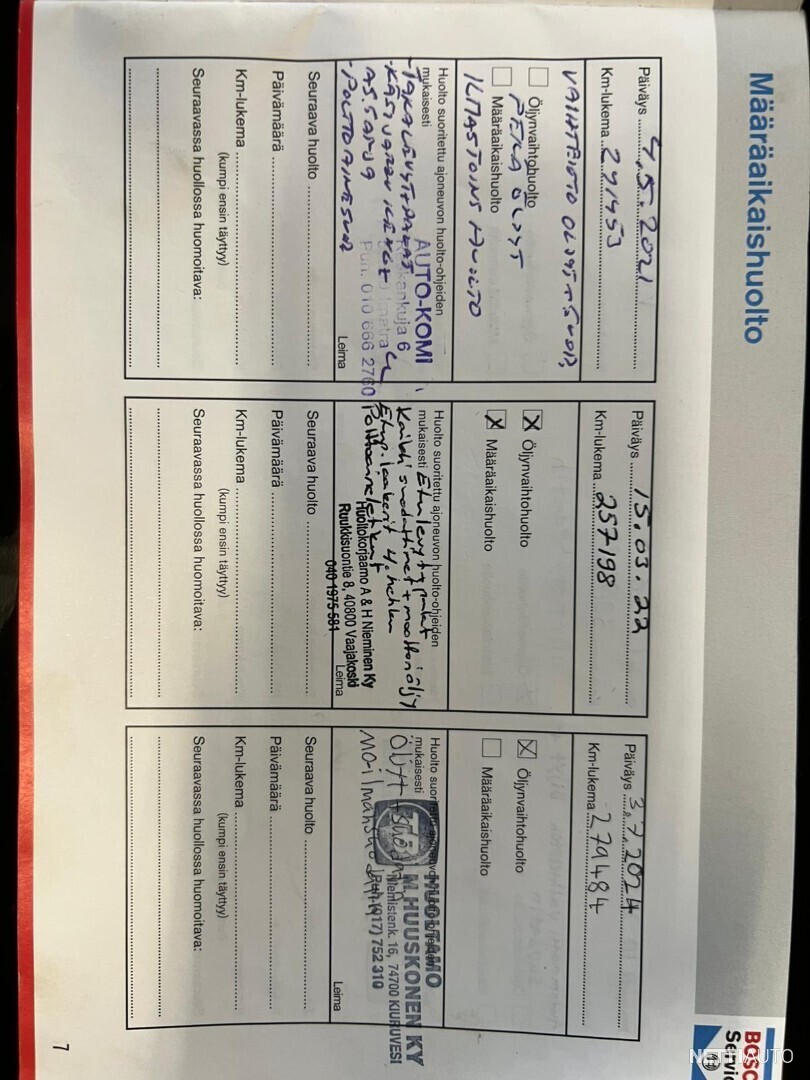 Määräaikaishuolto
BOSCH
Service
Päiväys 4.5.2021
Km-lukema 241453
VAIHTEISTO ÖLJYT + SUOD,
Öljynvaihtohuolto
PERÄ ÖLJYT
Määräaikaishuolto
ILMASTOINS HUOLTO
Huolto suoritettu ajoneuvon huolto-ohjeiden
mukaisesti
AUTO-KOMI
Puh. 010 666 2760
Leima
Seuraava huolto
Päivämäärä
Km-lukema
(kumpi ensin täyttyy)
Seuraavassa huollossa huomoitava:
Päiväys 15.03.22
Km-lukema 257198
X Öljynvaihtohuolto
X Määräaikaishuolto
Huolto suoritettu ajoneuvon huolto-ohjeiden
mukaisesti Etulevyt + palat
Kaikki suodattimet + moottoriöljy
Huoltokorjaamo A & H Nieminen Ky
Ruukkisuontie 8, 40800 Vaajakoski
040 1975 581
Leima
Seuraava huolto
Päivämäärä
Km-lukema
(kumpi ensin täyttyy)
Seuraavassa huollossa huomoitava:
Päiväys 3.7.2024
Km-lukema 279484
X Öljynvaihtohuolto
Määräaikaishuolto
Huolto suoritettu ajoneuvon huolto-ohjeiden
mukaisesti
HUOLTAMO
M. HUUSKONEN KY
16, 74700 KIURUVESI
(017) 752 310
Öljyt +
Leima
Seuraava huolto
Päivämäärä
Km-lukema
(kumpi ensin täyttyy)
Seuraavassa huollossa huomoitava:
7
NETTIAUTO